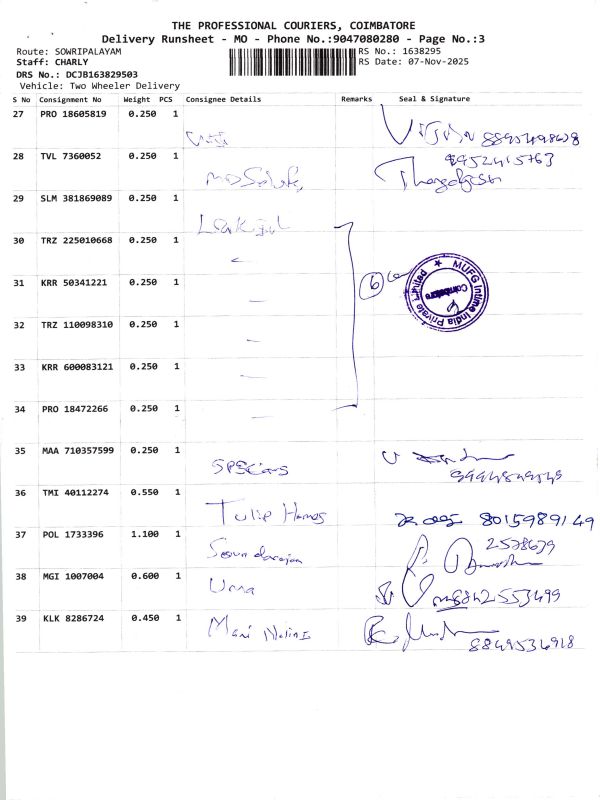 THE PROFESSIONAL COURIERS, COIMBATORE
Delivery Runsheet - MO - Phone No.:9047080280 - Page No.:3
Route: SOWRIPALAYAM
RS No.: 1638295
Staff: CHARLY
RS Date: 07-Nov-2025
DRS No.: DCJB163829503
Vehicle: Two Wheeler Delivery
S No Consignment No Weight PCS Consignee Details Remarks Seal & Signature
27 PRO 18605819 0.250 1
28 TVL 7360052 0.250 1
9952415763
29 SLM 381869089 0.250 1
30 TRZ 225010668 0.250 1
31 KRR 50341221 0.250 1
6
MUFG Intime India Private Limited
Coimbatore
32 TRZ 110098310 0.250 1
33 KRR 600083121 0.250 1
34 PRO 18472266 0.250 1
35 MAA 710357599 0.250 1
36 TMI 40112274 0.550 1 Tulip Homes 8015989149
37 POL 1733396 1.100 1 Soundarajan
38 MGI 1007004 0.600 1 Uma
39 KLK 8286724 0.450 1 Mani
8849534918